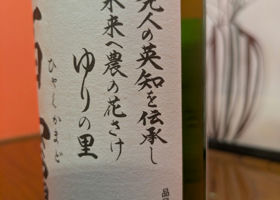 先人の英知を伝承し
未来へ農の花さけ
ゆりの里
ひやしかまど